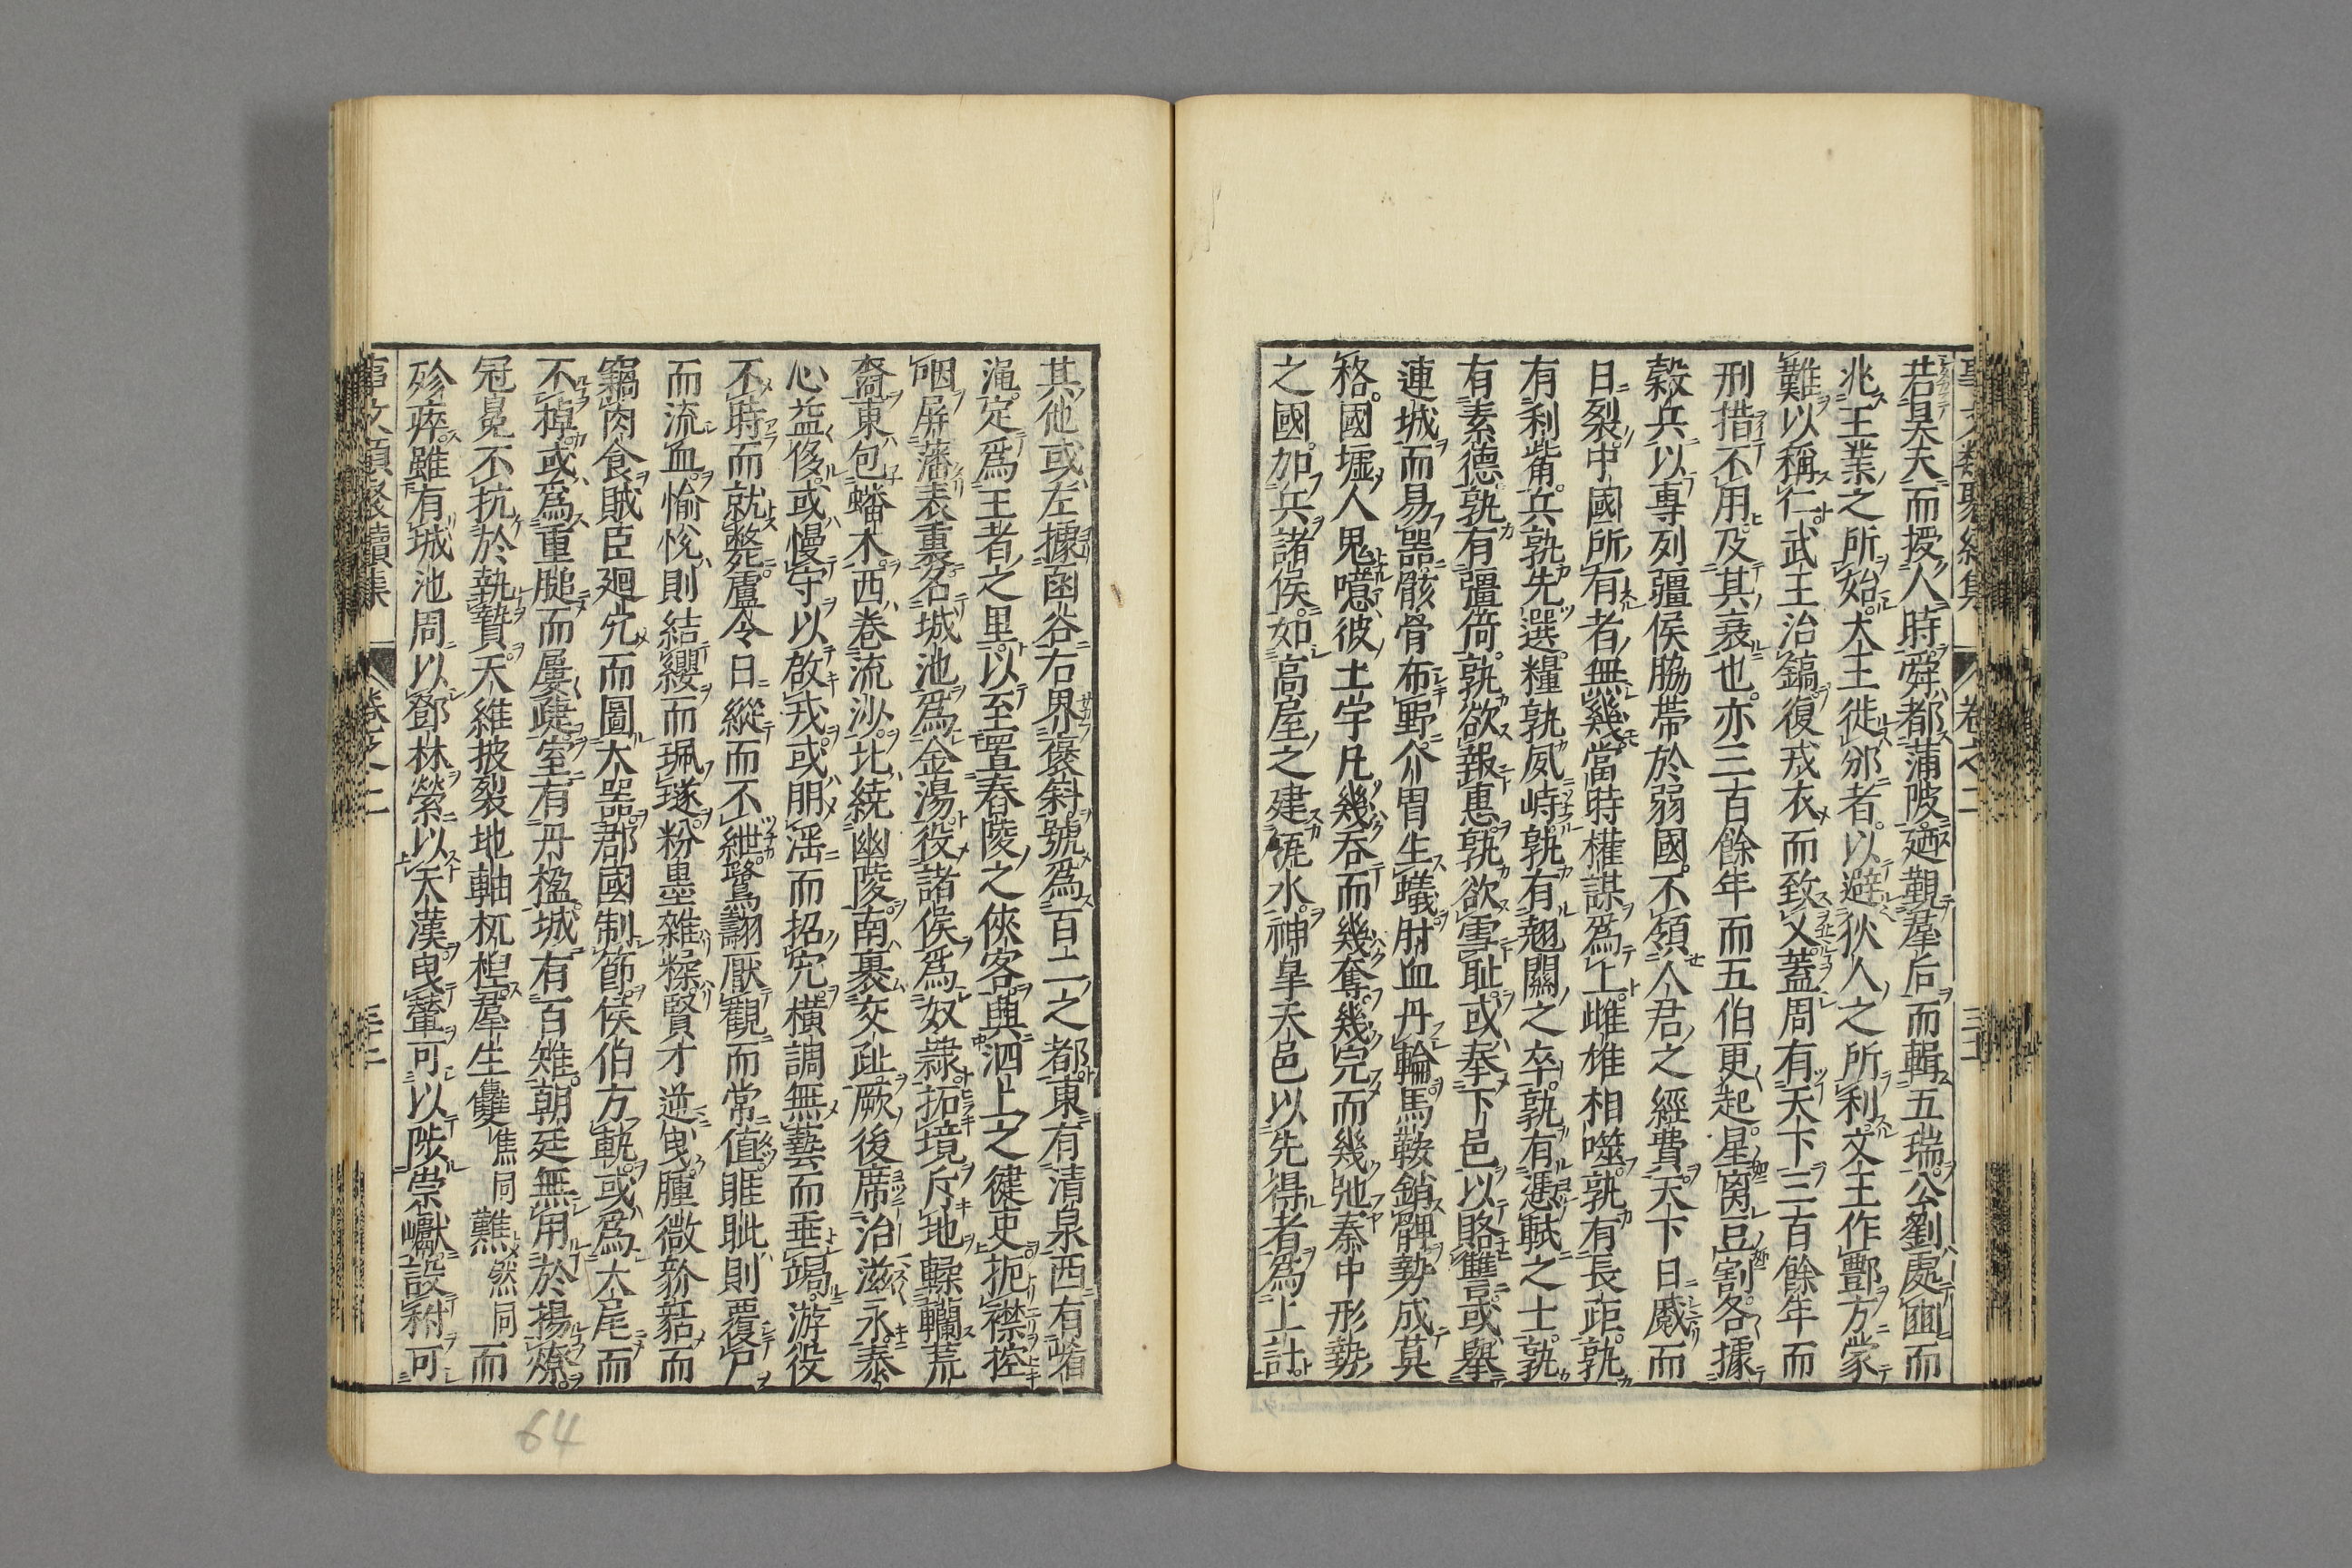 若昊天而授人時舜都蒲陂廵覲羣后而輯五瑞公劉處豳而
兆王業之所始大王徙邠者以避狄人之所利文王作酆方蒙
難以稱仁武王治鎬復戎衣而致乂蓋周有天下三百餘年而
刑措不用及其衰也亦三百餘年而五伯更起星豆割各據
穀兵以專列疆侯脇帶於弱國不領人君之經費天下日蹙而
日裂中國所有者無幾當時權謀爲上雌雄相噬孰有長距孰
有利觜兵孰先選糧孰夙峙孰有翹關之卒孰有憑軾之士孰
有素德孰有彊倚孰欲報惠孰欲雪恥或奉下邑以賂讐或舉
連城而易器骸骨布野介胄生蟻肘血丹輪馬鞍銷髀勢成莫
格國墟人鬼噫彼土宇凡幾吞而幾奪幾完而幾弛秦中形勢
之國加兵諸侯如高屋之建瓴水神皋天邑以先得者爲上計
其他或左據函谷右界褒斜號爲百二之都東有清泉西有
澠定爲王者之里以至置春陵之俠客典泗上之健吏扼襟控
咽屏藩表裏名城池爲金湯役諸侯爲奴隸拓境斥地轢轥荒
裔東包蟠木西卷流沙北繞幽陵南裹交趾厥後席治滋永泰
心益侈或慢守以啟戎或朋滛而招宄橫調無藝而垂竭游役
不時而就斃盧令日縱而不紲鷺翿厭觀而常值睚眦則覆尸
而流血愉悅則結纓而珮璲粉墨雜糅賢才逆曳腫微而
竊肉食賊臣廻宂而圖大器郡國制節侯伯方軌或爲大尾而
不掉或爲重膇而屢疐室有丹楹城有百雉朝廷無用於揚燎
冠冕不抗於執贄天維披裂地軸杌桯羣生儶焦同爇然同而
殄瘁雖有城池周以鄧林縈以天漢曳輦可以陟崇巘設可
卷之二
卷之二
三二